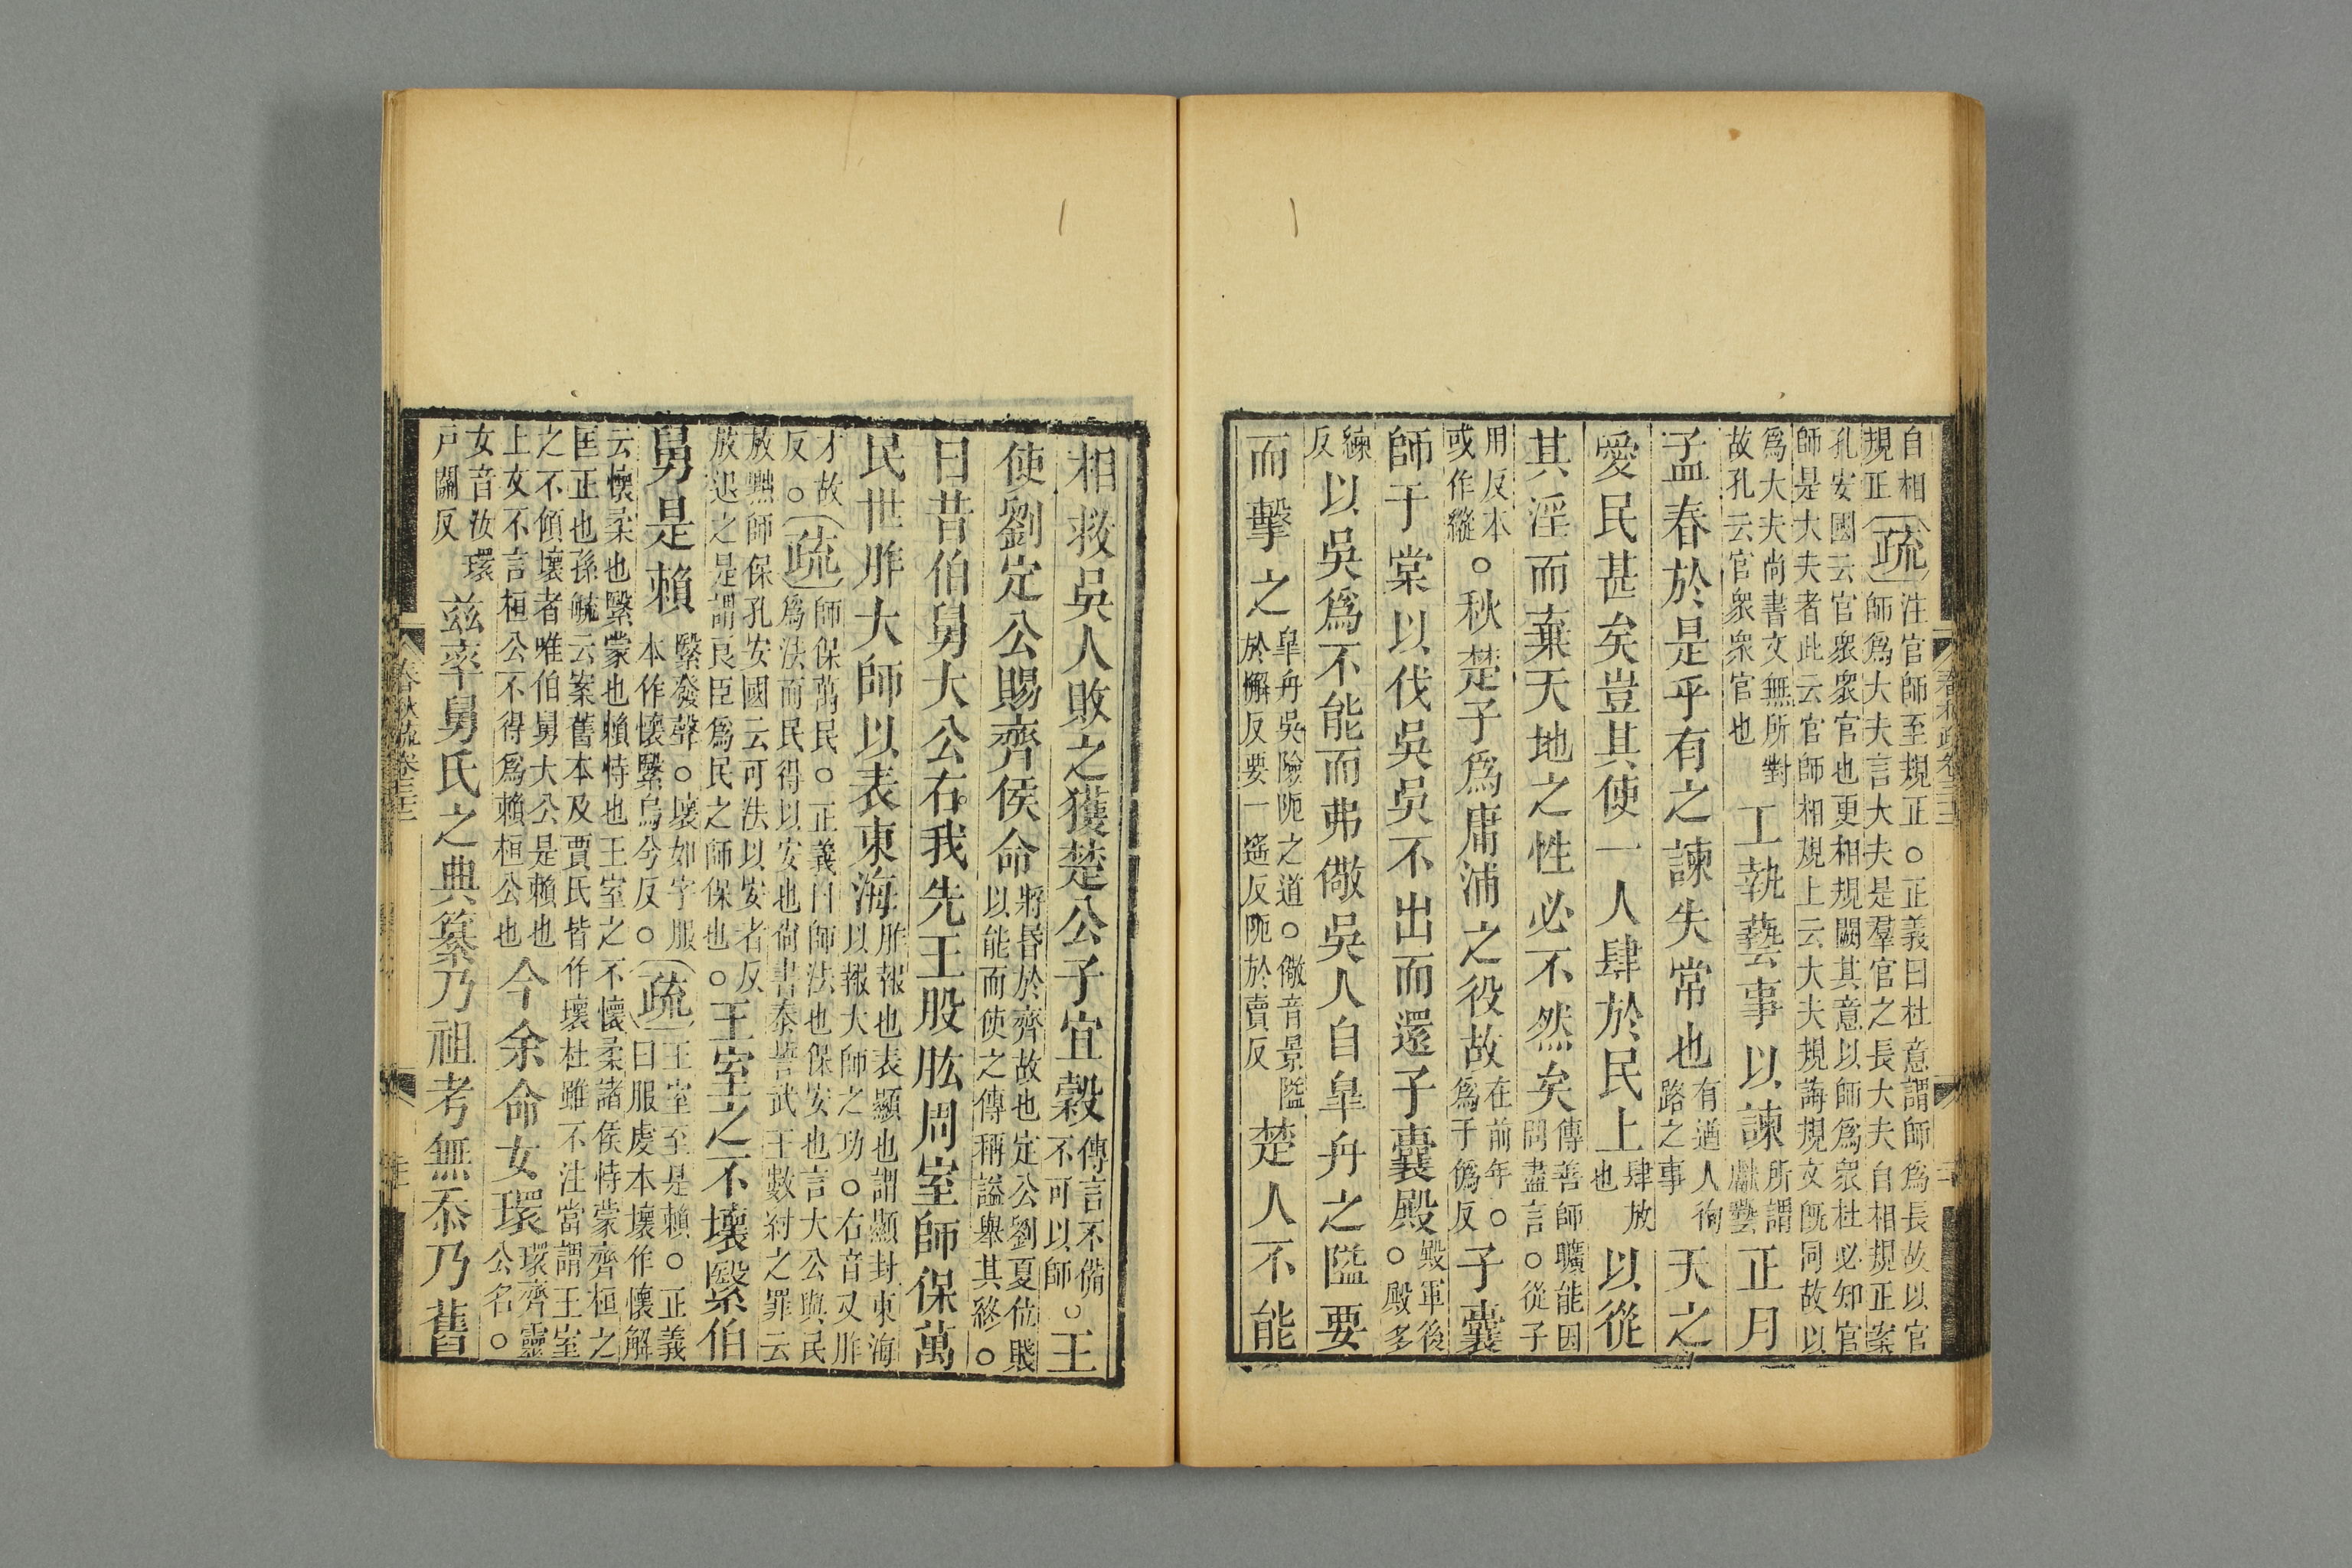 自相規正(疏)注官師至規正○正義曰杜意謂師爲長故以官
師爲大夫言大夫是羣官之長大夫自相規正案
孔安國云官衆衆官也更相規闕其意以師爲衆杜必知官
師是大夫者此云官師相規上云大夫規誨規文旣同故以
爲大夫尚書文無所對故孔云官衆衆官也工執藝事以諫所謂獻藝正月
孟春於是乎有之諫失常也有遒人徇路之事天之
愛民甚矣豈其使一人肆於民上肆放也以從
其淫而棄天地之性必不然矣傳善師曠能因問盡言○從子
用反本或作縱○秋楚子爲庸浦之役故在前年○爲于僞反子囊
師于棠以伐吳吳不出而還子囊殿殿軍後○殿多
練反以吳爲不能而弗儆吳人自皐舟之隘要
而擊之皐舟吳險阨之道○儆音景隘於懈反要一遙反阨於賣反楚人不能
相救吳人敗之獲楚公子宜穀傳言不備不可以師○王
使劉定公賜齊侯命將昬於齊故也定公劉夏位賤以能而使之傳稱謚舉其終○
曰昔伯舅大公右我先王股肱周室師保萬
民世胙大師以表東海胙報也表顯也謂顯封東海以報大師之功○右音又胙
才故反○(疏)師保萬民○正義曰師法也保安也言大公與民
爲法而民得以安也尙書泰誓武王數紂之罪云
放黜師保孔安國云可法以安者反
放退之是謂良臣爲民之師保也○王室之不壞繄伯
舅是賴繄發聲○壞如字服本作懷繄烏兮反○(疏)王室至是賴○正義
曰服虔本壞作懷解
云懷柔也繄蒙也賴恃也王室之不懷柔諸侯恃蒙齊桓之
匡正也孫毓云案舊本及賈氏皆作壞杜雖不注當謂王室
之不傾壞者唯伯舅大公是賴也
上文不言桓公不得爲賴桓公也今余命女環環齊靈公名○
女音汝環戶關反茲率舅氏之典纂乃祖考無忝乃舊